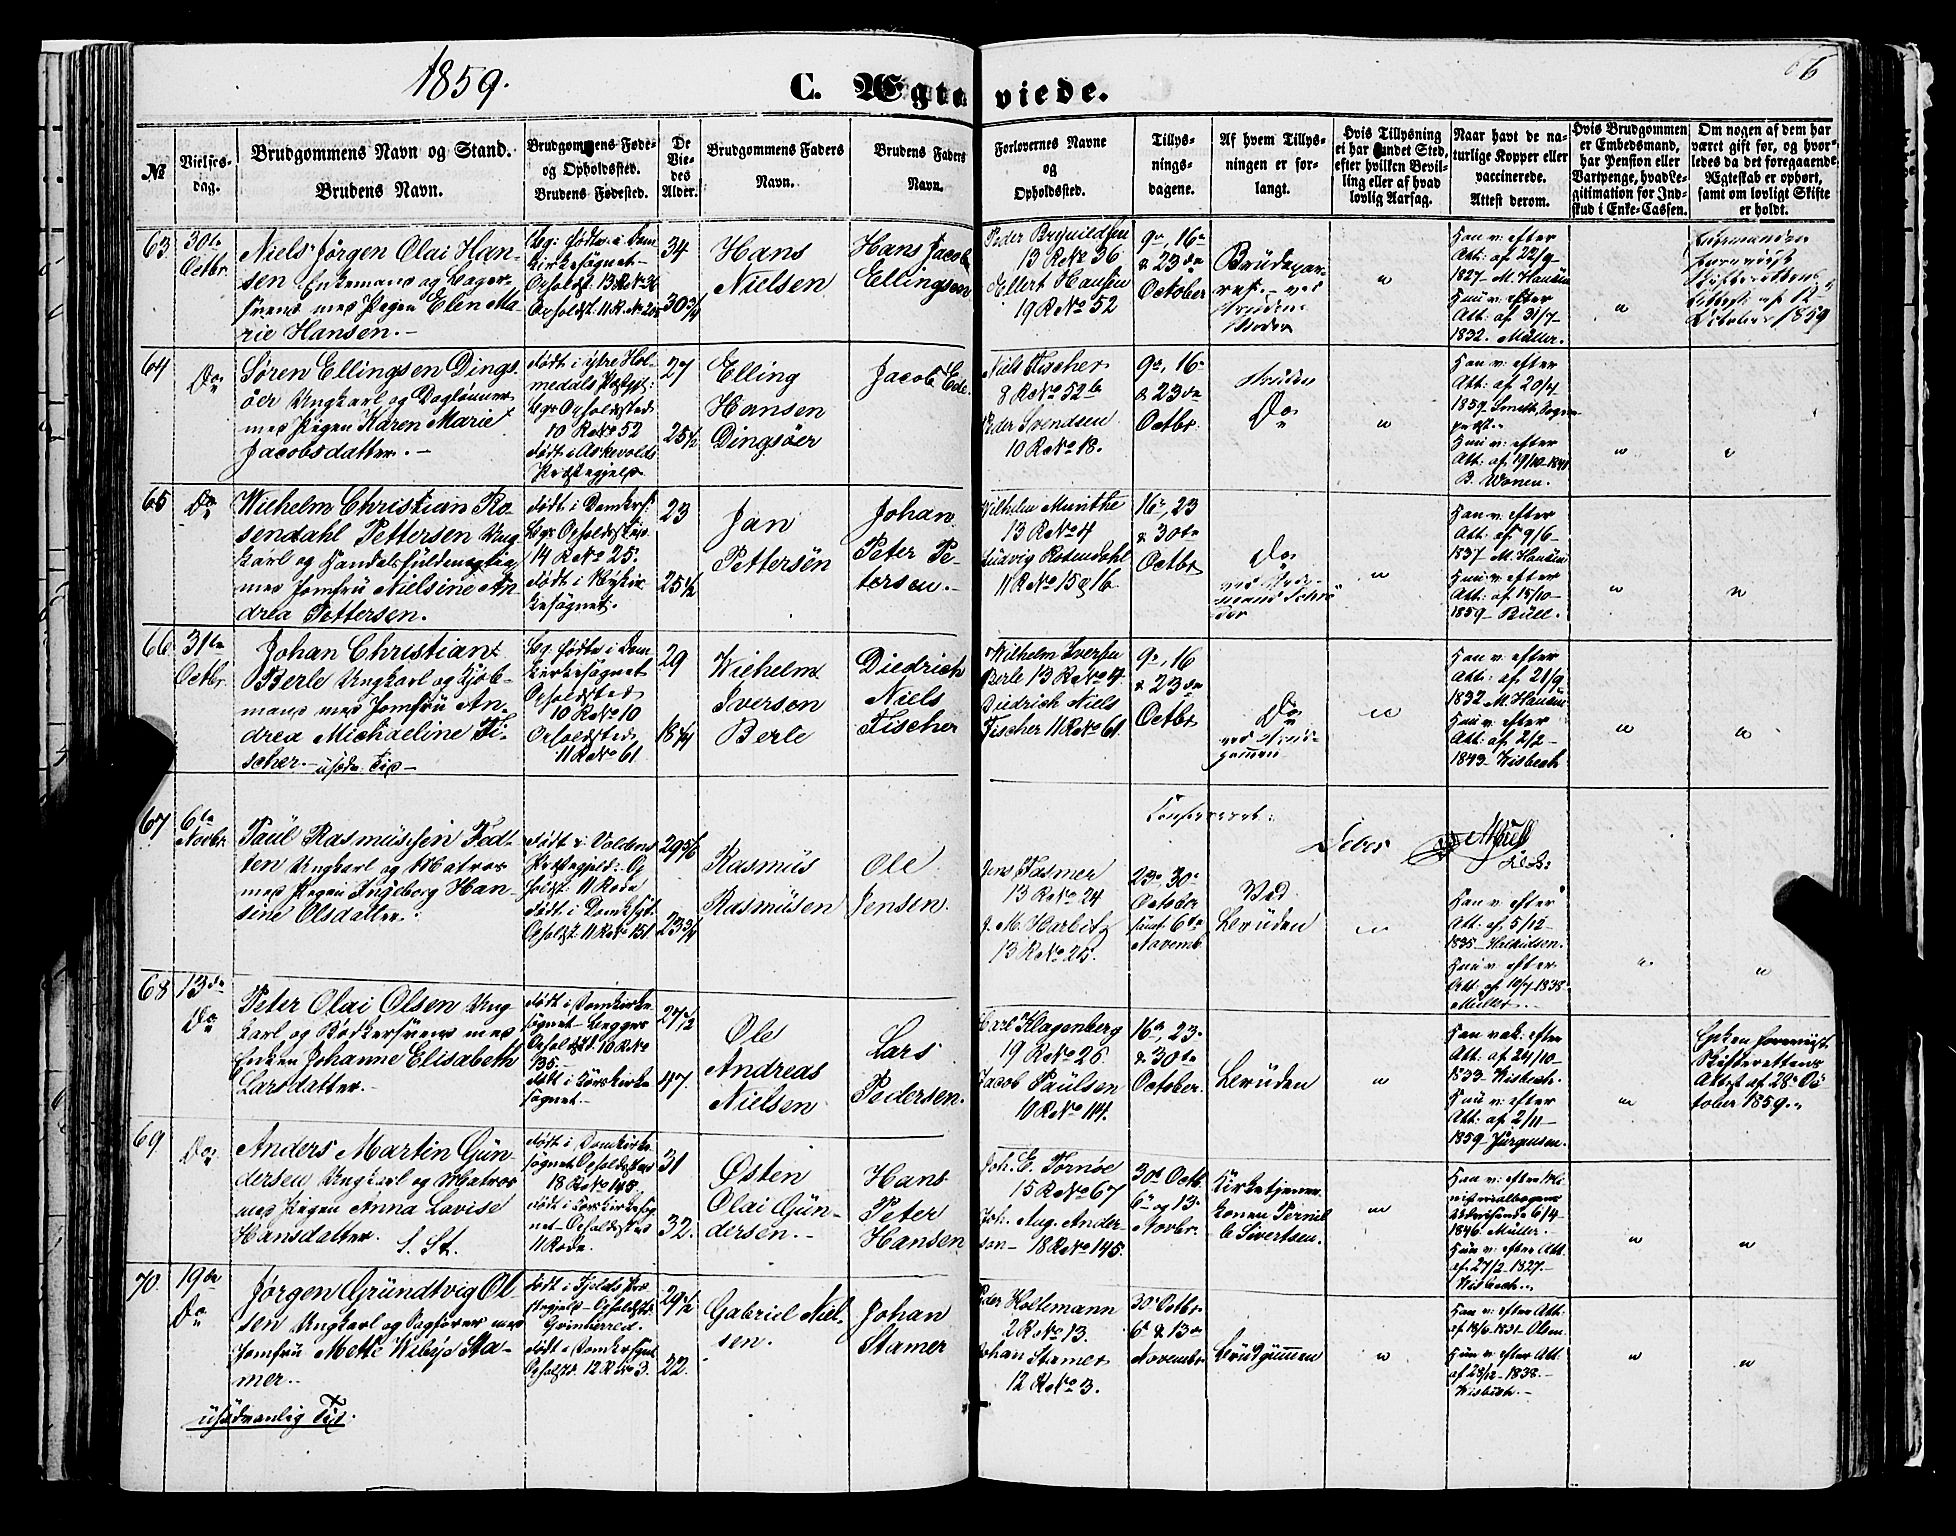 1859.
C. Ægteviede.
66
No
Vielses-
dag.
Brudgommens Navn og Stand.
Brudens Navn.
Brudgommens Føde-
og Opholdssted.
Brudens Fødested.
De
Vie-
des
Alder.
Brudgommens Faders
Navn.
Brudens Faders
Navn.
Forlovernes Navne
og
Opholdssted.
Tillys-
nings-
dagene.
Af hvem Tillys-
ningen er for-
langt.
Hvis Tillysning
ei har fundet Sted,
efter hvilken Bevil-
ling eller af hvad
lovlig Aarsag.
Naar havt de na-
turlige Kopper eller
vaccinerede.
Attest derom.
Hvis Brudgommen
er Embedsmand,
har Pension eller
Vartpenge, hvad Le-
gitimation for Ind-
skud i Enke-Cassen.
Om nogen af dem har
været gift før, og hvor-
ledes da det foregaaende
Ægteskab er ophørt,
samt om lovligt Skifte
er holdt.
63.
30te
Octbr.
Niels Jørgen Olai Han-
sen Enkemand og Bager-
svend med Pigen Elen Ma-
rie Hansen.-
Beg: fødte i Dom
kirkesognet-
Opholdst: 13 R No 36
34
30 3/4
Hans
Nielsen
Hans Jacob
Ellingsen
Peder Brynildsen
13 R No 36
Ellert Hansen
19 R No 52
9de, 16de
& 23de
October
Brudepar-
ret - ved
Brudens
Moder
Han v: efter
Att: af 22/9
1827- M. Hansen
Hun v: efter
Att: af 31/7-
1832. Müller.
Skifterettens
Attest af 12
October 1859
64
Do
Søren Ellingsen Dings-
öer Ungkarl og Dagleiner
med Pigen Karen Marie
Jacobsdatter.-
født i Ytre Hol-
medals Præstgj:
Begs Opholdssted
10 R No 52
født i Askevolds
Præstegjeld
27
25 1/2
Elling
Hansen
Dingsöer
Jacob Ede.
Niels Fischer
8 R No 52b
Peder Svendsen
10 R No 18.
9de, 16de
& 23de
Octbr.
Bruden
Do
Han v: efter
Att: af 20/4
1859-
Hun v: efter
Att: af 19/10-1841
65
Do
Wilhelm Christian Ro-
sendahl Pettersen Ung-
karl og Handelsfuldmægtig
med Jomfru Nielsine An-
drea Pettersen.
født i Domkrs:
14 R No 25.
født i Nykir-
kesognet.
23
25 1/2
Jan
Pettersen
Johan
Peter Pe-
tersen.-
Wilhelm Munthe
13 R No 4
Ludvig Rosendahl
11 R No 15 & 16
16de, 23
& 30te
Octbr
Do
Han v: efter
Att: af 9/6-
1837- M. Hansen
Hun v: efter
Att: af 15/10-
1859- Büll.
66
31te
Octbr.
Johan Christian
Berle Ungkarl og Kjøb-
mand med Jomfru An-
drea Michaeline Fi-
scher.- usædv. Tid-
Beg: fødte i Dom
kirkesognet
Opholdssted
10 R No 10
Opholdssted
11 R No 61
29
18 3/4
Wilhelm
Iversen
Berle
Diedrich
Niels
Fischer
Wilhelm Iversen
Berle 13 R No 4.
Diedrich Niels
Fischer 11 R No 61
9de, 16
& 23de
Octbr.
Do
ved Brud-
gommen
Han v: efter
Att: af 21/9
1832 M. Hansen
Hun v: efter
Att: af 2/2-
1843- Wisbech
Confereret:
67
6te
Novbr.
Paul Rasmussen Fod-
ten Ungkarl og Matros
med Pigen Ingeborg Han-
sine Olsdatter.
født i Voldens
Præstegjeld: Op-
holdst: 11 Rode
født i Domksgt.
Opholdst: 11 R No 151
29 5/6
23 3/4
Rasmus
Rasmusen
Ole
Jensen.
Jens Fasmer
13 R No 24
J. M. Harbitz
13 R No 25.
23de, 30te
October
samt 6te
Novemb.
Ved
Bruden
Han v: efter
Att: af 5/12-
1835-
Hun v: efter
Att: af 10/7 1838-
Müller.
68
13de
Do
Peter Olai Olsen Ung-
karl og Bødkersvend med
Enken Johanne Elisabeth
Larsdatter.
født i Domkirke
sognet- Begges
Opholdst. 10 R No
135.
født i Korskirke
sognet-
27 1/2
47.
Ole
Andreas
Nielsen
Lars
Pedersen.
Carl Klagenberg
19 R No 26
Jacob Paulsen
10 R No 14.
16de, 23de
& 30te
October.
Bruden
Han vak: efter
Att: af 24/10-
1833- Wisbech.
Hun v: efter
Att: af 2/11-
1859- Jürgensen.
Enken forevist
Skifterettens
Attest af 28de Oc
tober 1859.
69
Do
Anders Martin Gun-
dersen Ungkarl og Matros
med Pigen Anna Lovise
Hansdatter. S. St.
født i Domkirke
sognet Opholdssted
18 R No 145.
født i Korskirkesog
net- Opholdssted
11 Rode.
31
32.
Østen
Olai Gun-
dersen.-
Hans
Peter
Hansen
Joh. E. Tornøe
15 R No 67
Joh. Aug. Ander-
son- 18 R No 145.
30te Octb.
6te og 13de
Novbr.
Kirketjener
konen Pernil
le Sivertsen.
Han v: efter Mi
nisterialbogens
Udvisende 6/4-
1846. Müller.
Hun v: efter Att.
af 27/2 1827-
Wisbech.
70.
19de
Do
Jørgen Gründtvig Ol-
sen Ungkarl og Sagfører med
Jomfru Mette Wibye Sta-
mer.
født i Fjelds Præ-
stegjeld- Opholdst:
født i Domkirkesgnt
Opholdst. 12 R No 3.
29 1/2
22.
Gabriel Niel-
sen.
Johan
Stamer
Peder Holtemann
2 R No 13.
Johan Stamer
12 R No 3.
30te Octbr.
6te & 13de
Novembr.
Brudgummen
Han v: efter Att.
af 18/6-1831- Olsen.
Hun v: efter Att.
af 28/12-1838.-
Wisbech.-
usædvanlig Tid.